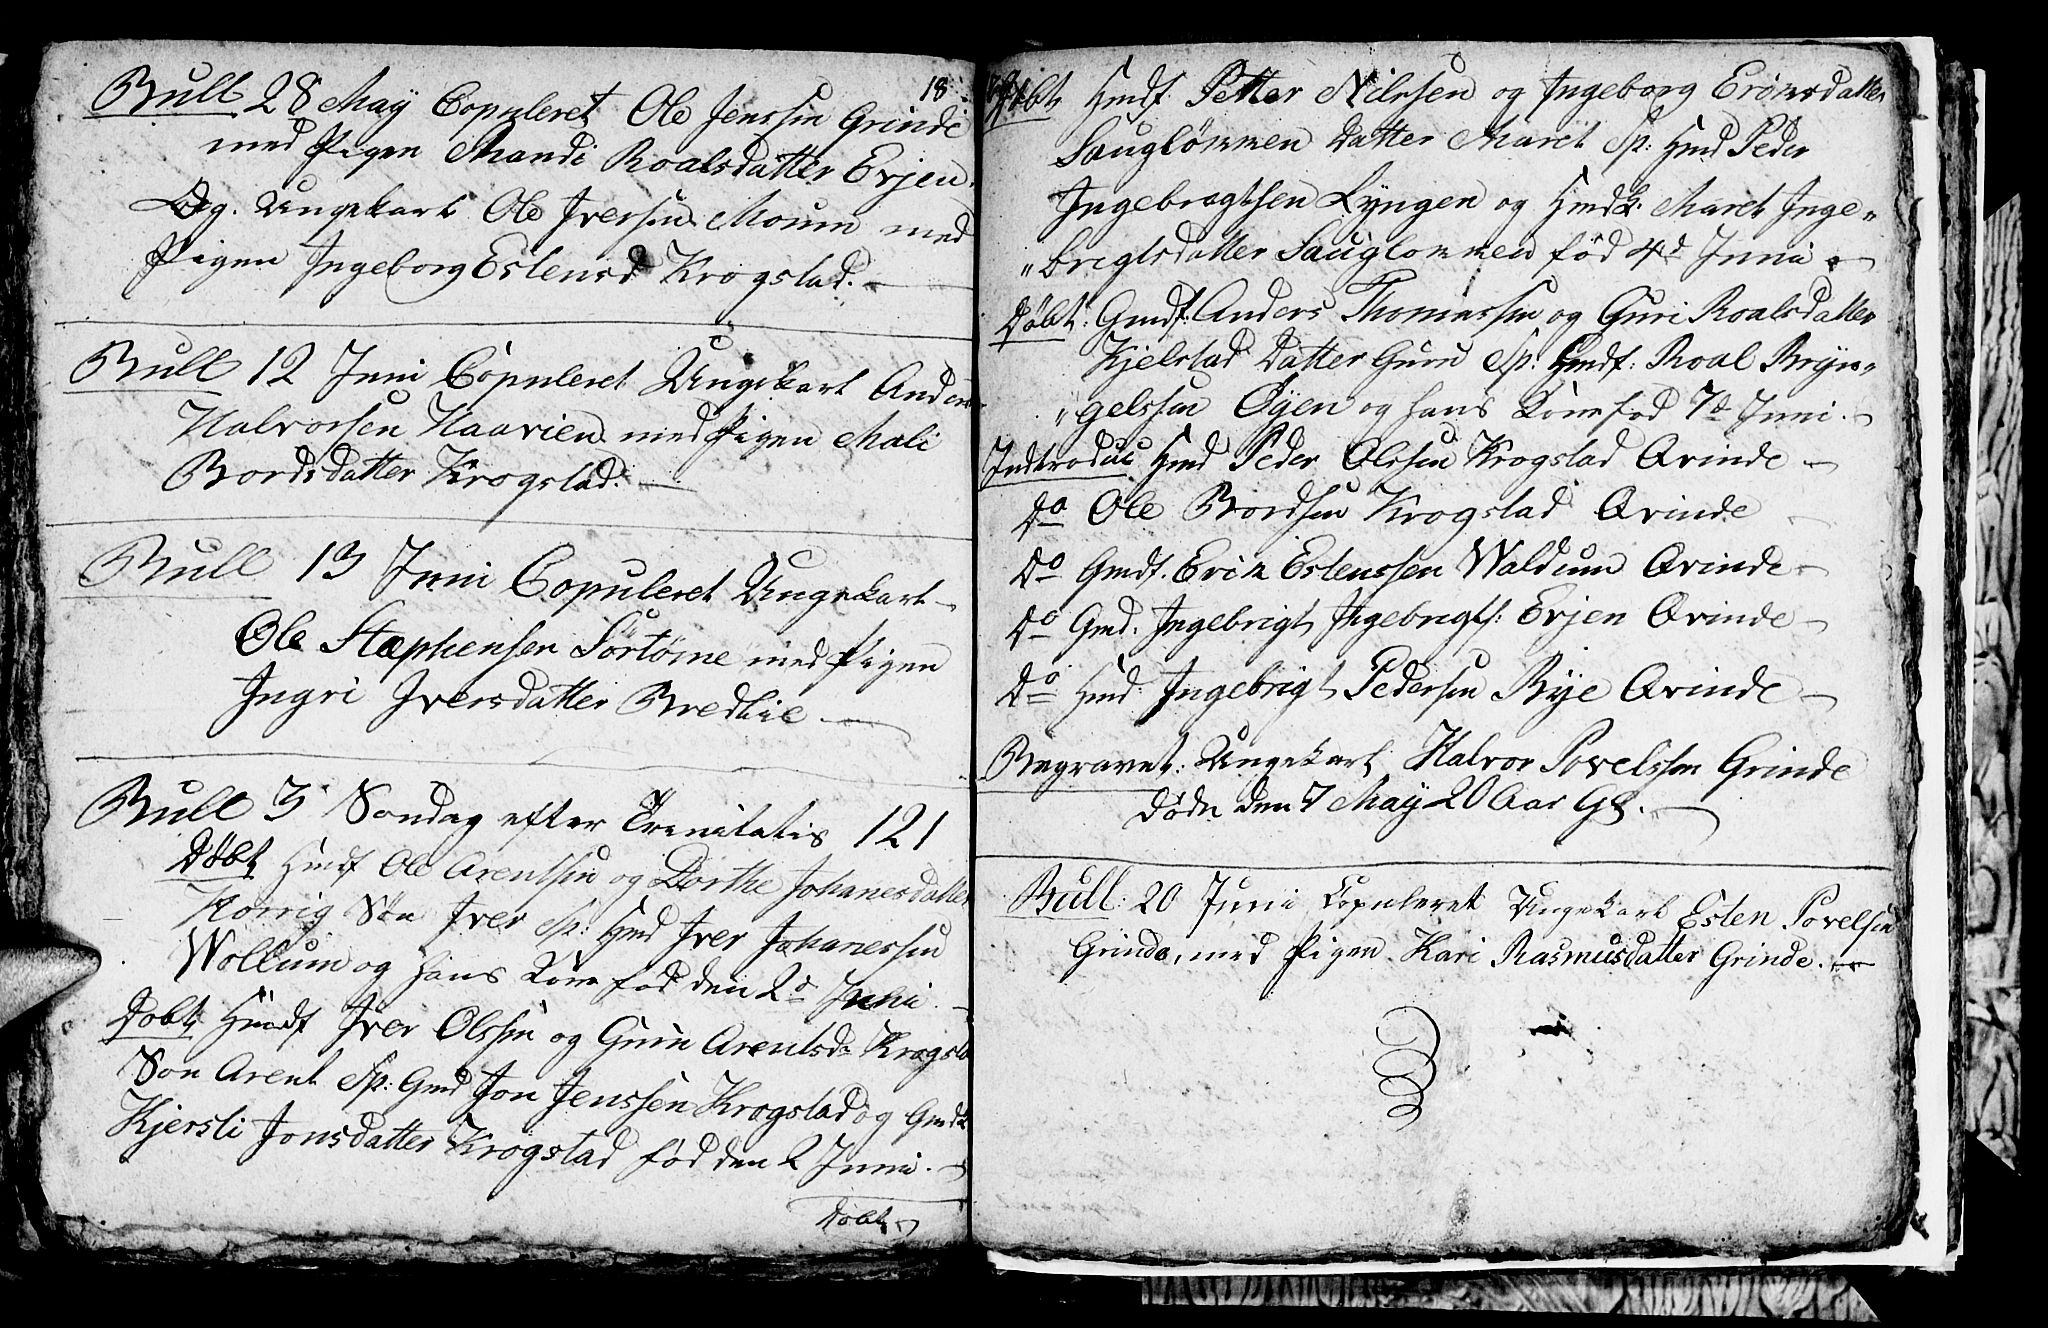 18
Bull 28 May Copuleret Ole Jenssen Grinde
med Pigen Mandi Roalsdatter Evjen.
Og. Ungekarl Ole Iversen Moum med
Pigen Ingeborg Estensd Krogstad.
Bull 12 Juni Copuleret Ungekarl Anders
Halvorsen Haavien med Pigen Mali
Bordsdatter Krogstad.
Bull 13 Juni Copuleret Ungekarl
Ole Stephensen Sørtøme med Pigen
Ingri Iversdatter Bredlie.
Bull 3 Søndag efter Trenitatis 121
Døbt Hmdf Ole Arentsen og Dorthe Johanesdatter
Horrig Søn Iver Sp: Hmd Iver Johanessen
Wollum og hans Kone fød den 2d Juni.
Døbt Hmdf Iver Olssen og Guru Arentsd: Krogsta
Søn Arent Sp: Gmd Jon Jenssen Krogstad og Gmdk
Kjersti Jonsdatter Krogstad fød den 2 Juni.
Døbt
Døbt Hmdf Petter Nilssen og Ingeborg
Sauglømmen Datter Maret Sp: Hmd Peder
Ingebrogtsen Lyngen og Hmdk. Maret Inge„
„brigtsdatter Sauglommen fød 4d Juni.
Døbt: Gmdf: Anders Thomassen og Guri Roalsdatter
Kjelstad Datter Guru Sp: Hmdf: Roal Bryn„
„gelssen Øyen og hans Kone fød 7d Juni.
Indtroduc Hmd Peder Olssen Krogstad Qvinde
Do Ole Bordsen Krogstad Qvinde
Do Gmdf. Erik Estenssen Waldum Qvinde
Do Gmd. Ingebrigt Ingebrigts: Evjen Qvinde
Do Hmd: Ingebrigt Pedersen Rye Qvinde
Begravet: Ungekarl Halvor Povelssen Grinde
døde den 7 May 20 Aar Gl.
Bull: 20 Juni Copuleret Ungekarl Esten Povelsen
Grinde, med Pigen Kari Rasmusdatter Grinde.